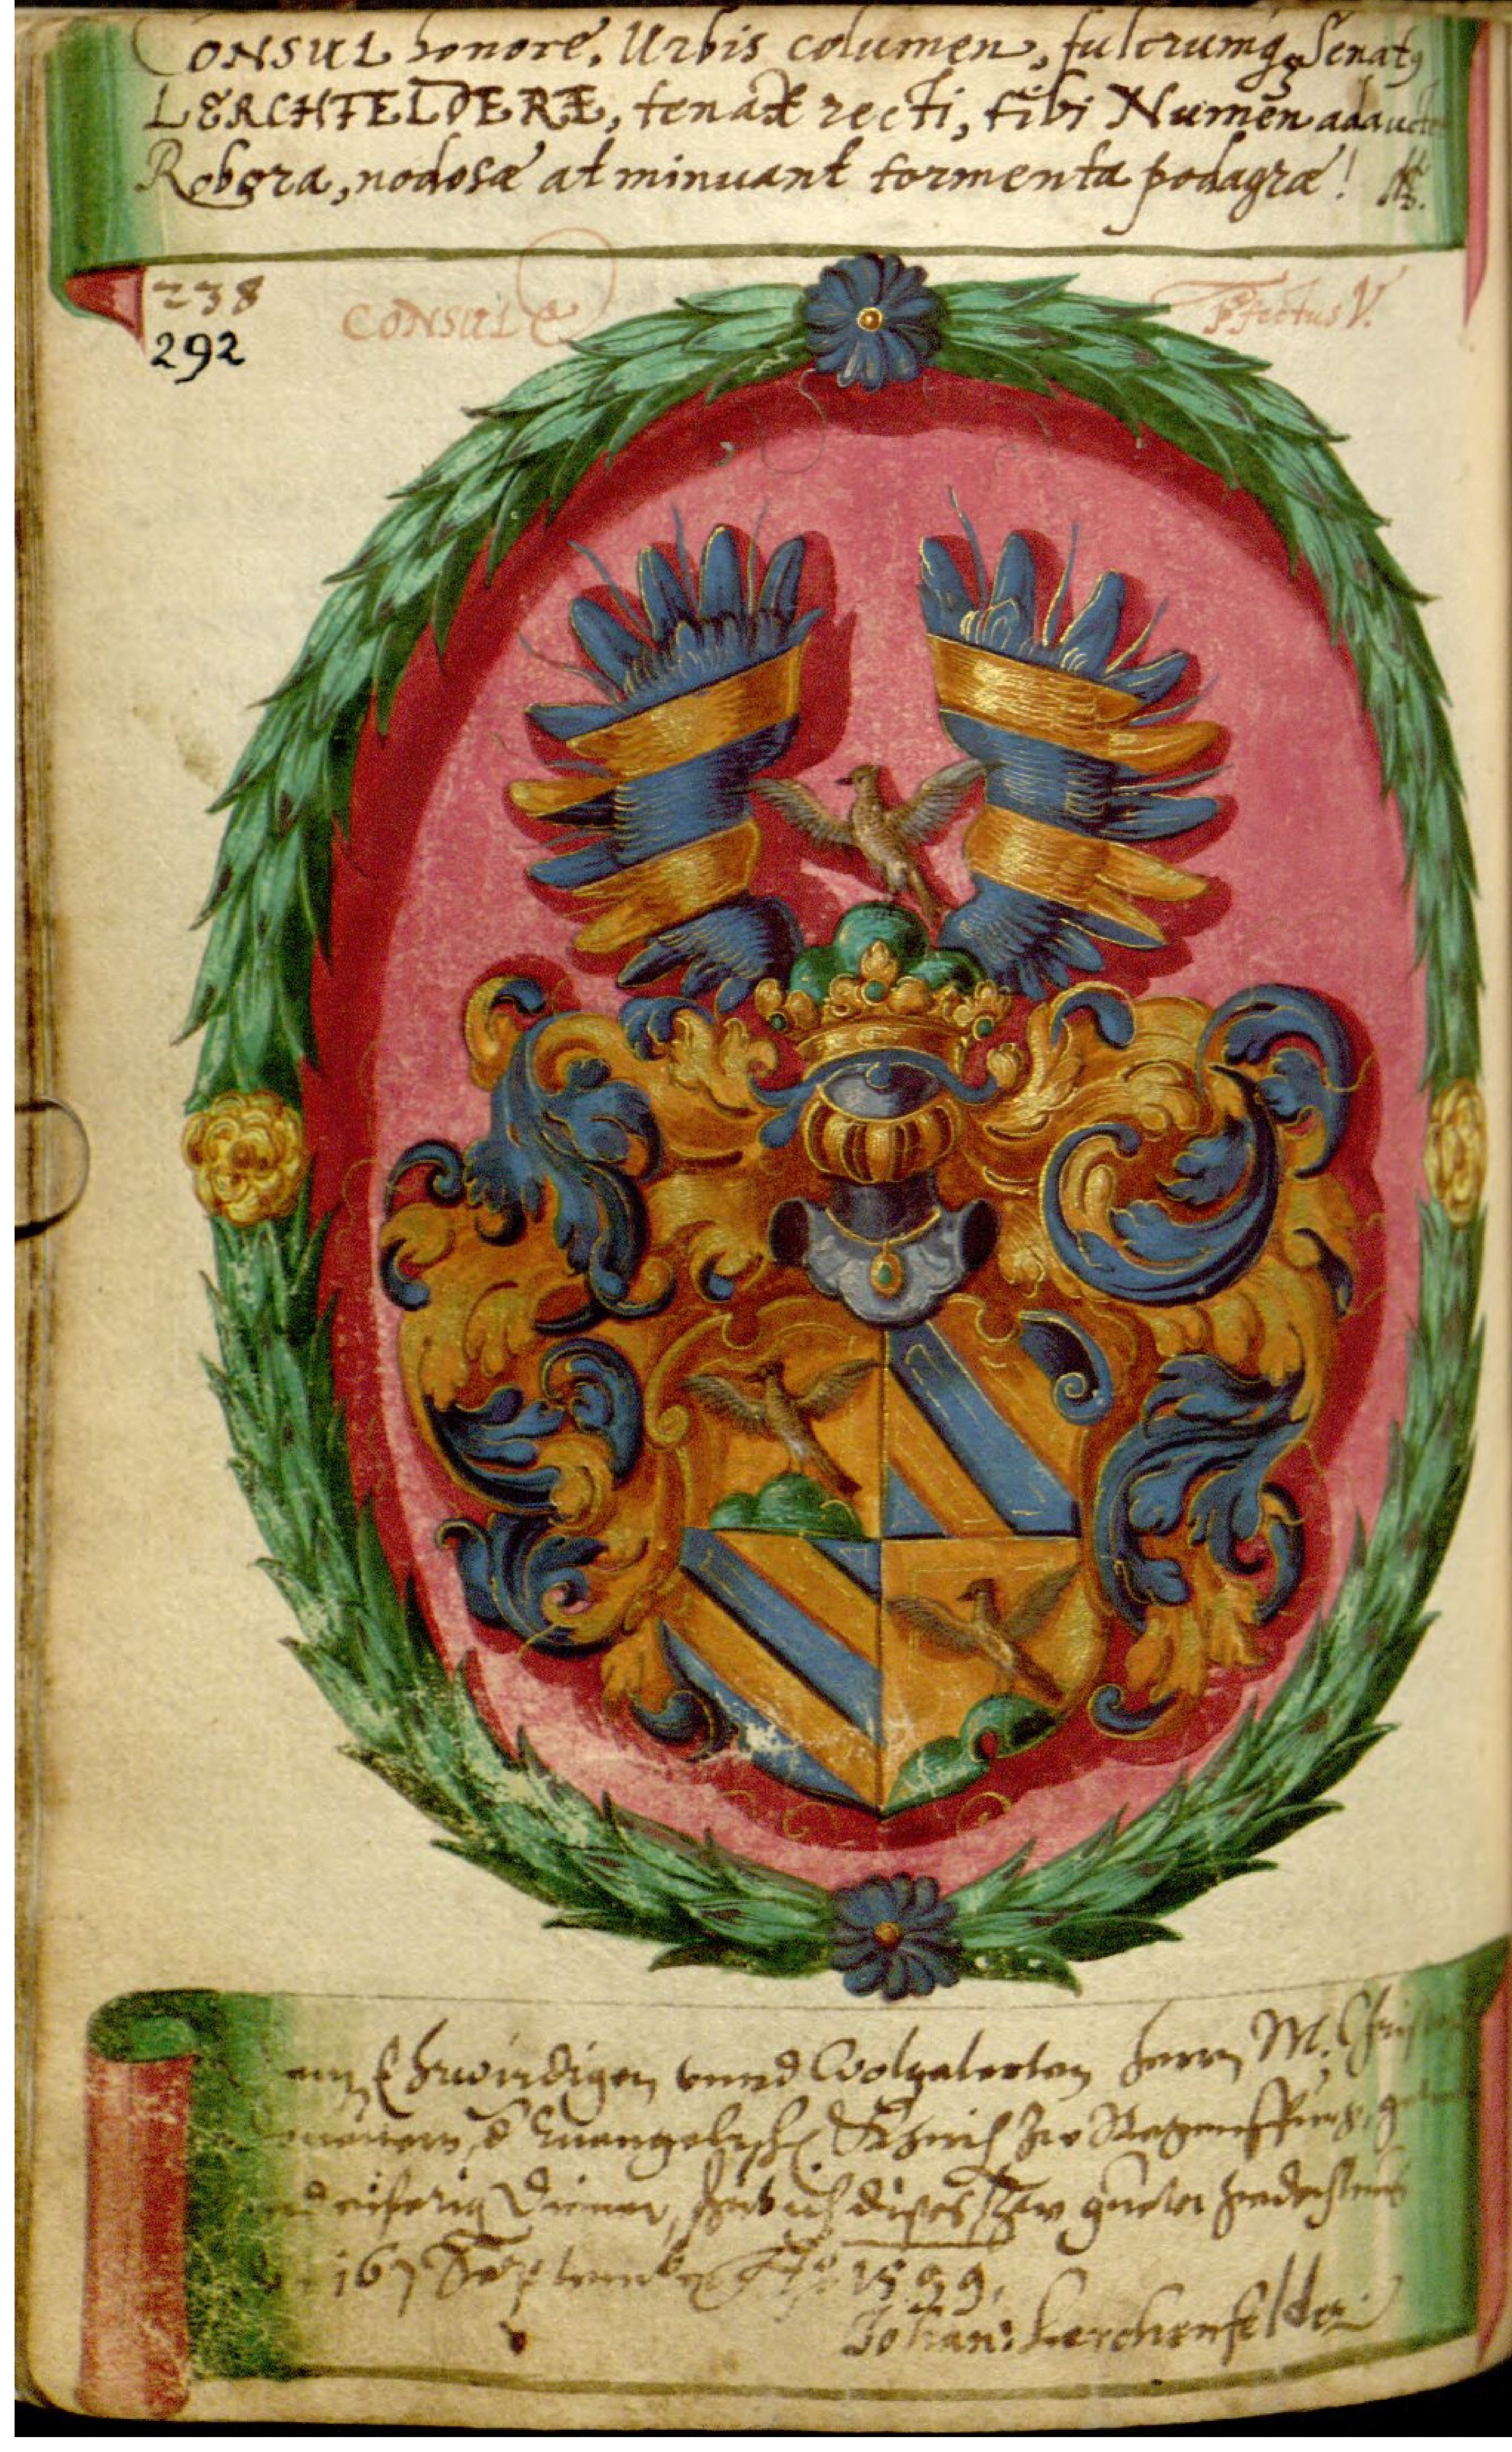 CONSUL honore, Urbis columen, fulcrumq₃ Senatꝯ
LERCHFELDERE, tenax recti, tibi Numen adaucte
Robora, nodosæ at minuant tormenta podagræ!
238
292
CONSULE
Pfectus V.
Ehrwirdigen vnnd Wolgelerten Herrn M.
Euangelisch. Khirch zu Regenspurg,
eiferig Diener, hab ich dises zur
16 Septembr. Aº 1599.
Johan: Lerchenfelder